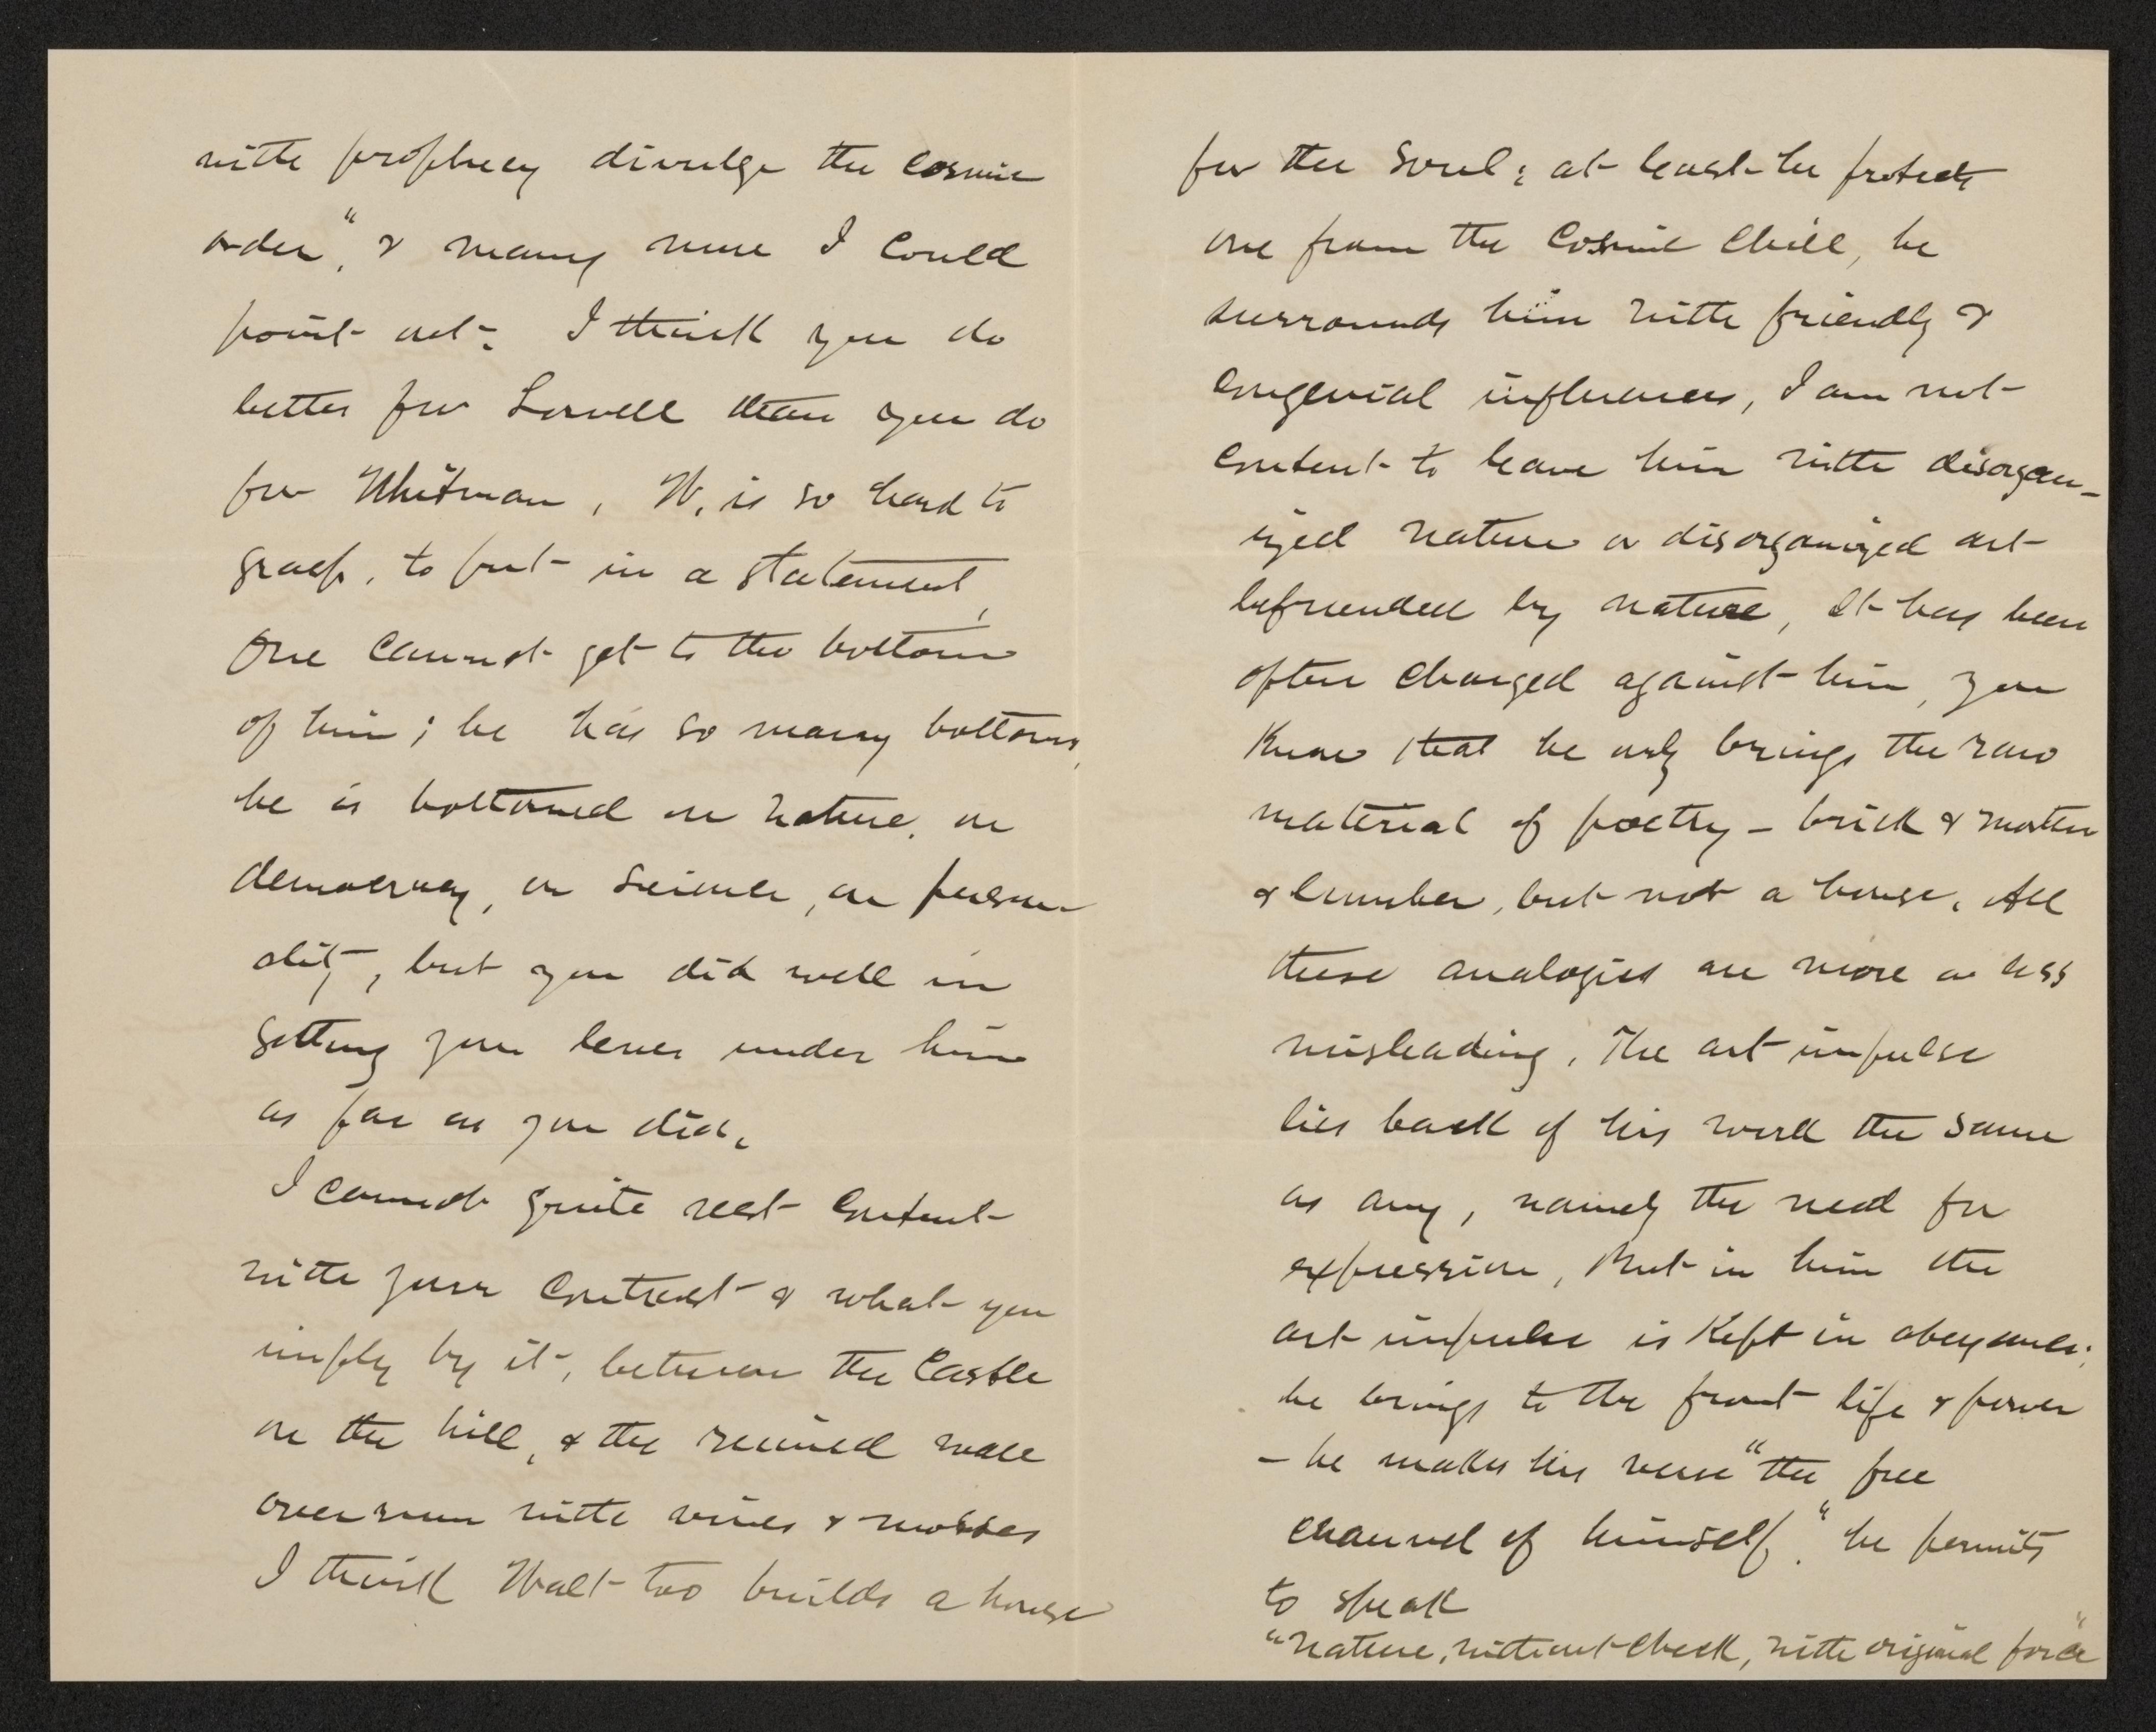 with prophecy divulge the cosmic
order," & many more I could
point out. I think you do
better for Lowell than you do
for Whitman, W. is so hard to
grasp, to put in a statement,
One cannot get to the bottom
of him; he has so many bottoms,
he is bottomed on nature, on
democracy, on science, on person-
ality, but you did well in
getting your lever under him
as far as you did.
I cannot quite rest content
with your contrast & what you
imply by it, between the Castle
on the hill, & the ruined wall
overrun with vines & mosses
I think Walt too builds a house
for the soul; at least he protects
one from the cosmic chill, he
surrounds him with friendly &
congenial influences, I am not
content to leave him with disorgan-
ized nature or disorganized art
befriended by nature, It has been
often charged against him, you
know that he only brings the raw
material of poetry – brick & mortar
& lumber, but not a house. All
these analogies are more or less
misleading. The art impulse
lies back of his work the same
as any, namely the need for
expression, But in him the
art impulse is kept in abeyance;
he brings to the front life & power
– he makes his verse "the free
channel of himself." he permits
to speak
"Nature, without check, with original force"